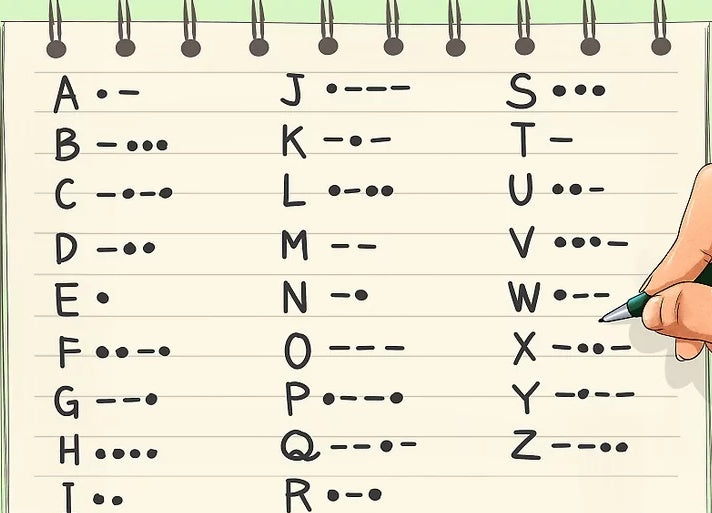 A •–
B –•••
C –•–•
D –••
E •
F ••–•
G ––•
H ••••
I ••
J •–––
K –•–
L •–••
M ––
N –•
O –––
P •––•
Q ––•–
R •–•
S •••
T –
U ••–
V •••–
W •––
X –••–
Y –•––
Z ––••